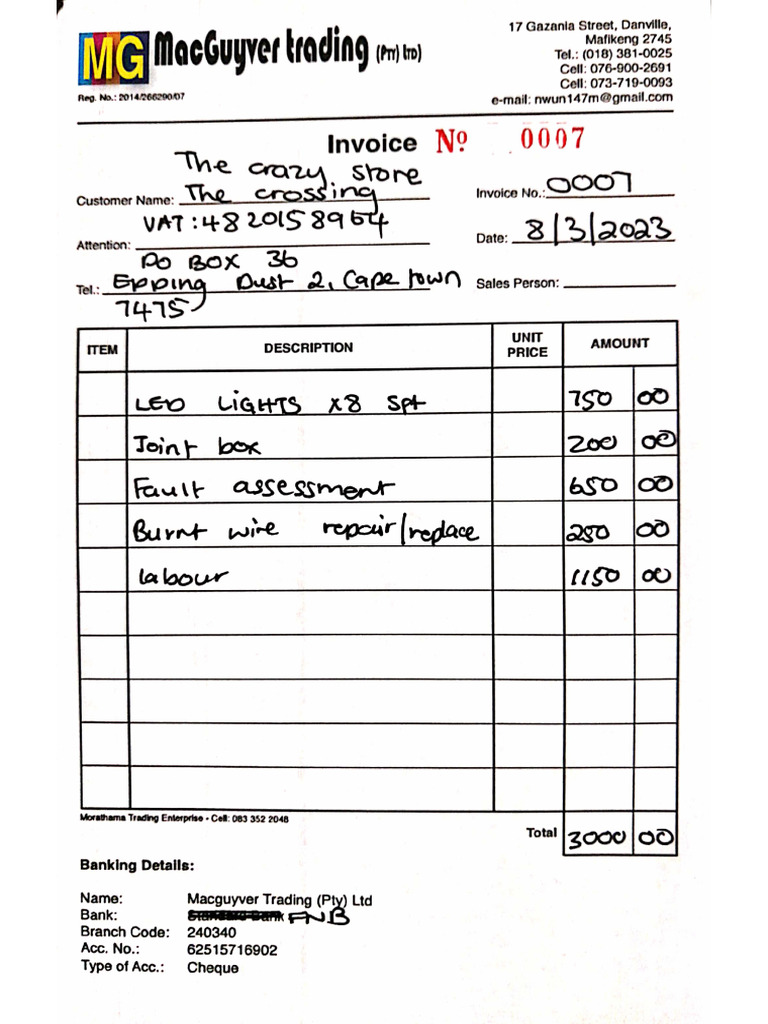 MG MacGuyver trading (PTY) LTD)
Reg. No.: 2014/266290/07
17 Gazania Street, Danville,
Mafikeng 2745
Tel.: (018) 381-0025
Cell: 076-900-2691
Cell: 073-719-0093
e-mail: nwun147m@gmail.com
Invoice No 0007
The crazy store
Customer Name: The crossing
Invoice No.: 0007
VAT: 4820158964
Attention:
Date: 8/3/2023
PO BOX 36
Tel.: Epping Dust 2, Cape town
Sales Person:
7475
ITEM DESCRIPTION UNIT PRICE AMOUNT
LED LIGHTS x8 Spt 750 00
Joint box 200 00
Fault assessment 650 00
Burnt wire repair/replace 250 00
labour 1150 00
Morathama Trading Enterprise • Cell: 083 352 2048
Total 3000 00
Banking Details:
Name: Macguyver Trading (Pty) Ltd
Bank: Standard Bank FNB
Branch Code: 240340
Acc. No.: 62515716902
Type of Acc.: Cheque